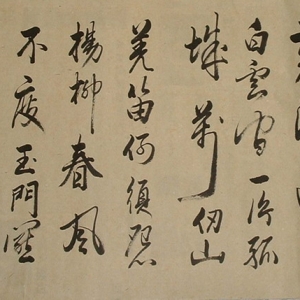 白雲間一片孤
城萬仞山
羌笛何須怨
楊柳春風
不度玉門關